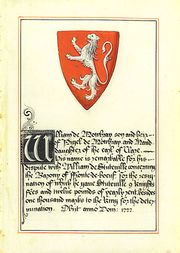 William de Mowbray son and heir
of Nigel de Mowbray and Maud
daughter of the earl of Clare.
His name is remarkable for his
dispute with William de Stuteville concerning
the Barony of Fronte-de-boeuf for the resig
nation of which he gave Stuteville 9 knight's
fees and twelve pounds of yearly rent, besides
one thousand marks to the King for the deter
mination. Obiit anno Dom. 1222.